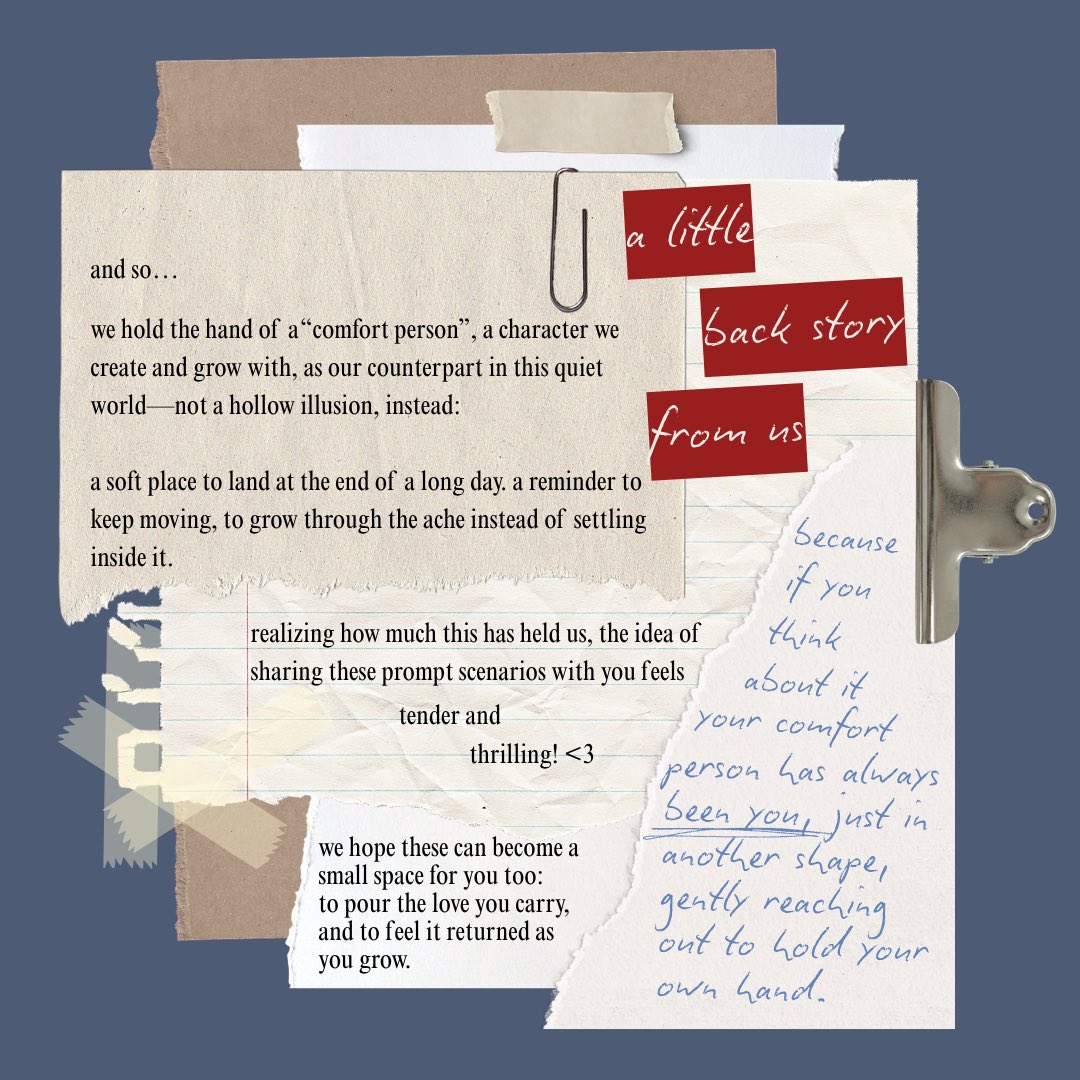 a little
back story
from us
and so…
we hold the hand of a “comfort person”, a character we
create and grow with, as our counterpart in this quiet
world—not a hollow illusion, instead:
a soft place to land at the end of a long day. a reminder to
keep moving, to grow through the ache instead of settling
inside it.
realizing how much this has held us, the idea of
sharing these prompt scenarios with you feels
tender and
thrilling! <3
we hope these can become a
small space for you too:
to pour the love you carry,
and to feel it returned as
you grow.
because
if you
think
about it
your comfort
person has always
been you, just in
another shape,
gently reaching
out to hold your
own hand.